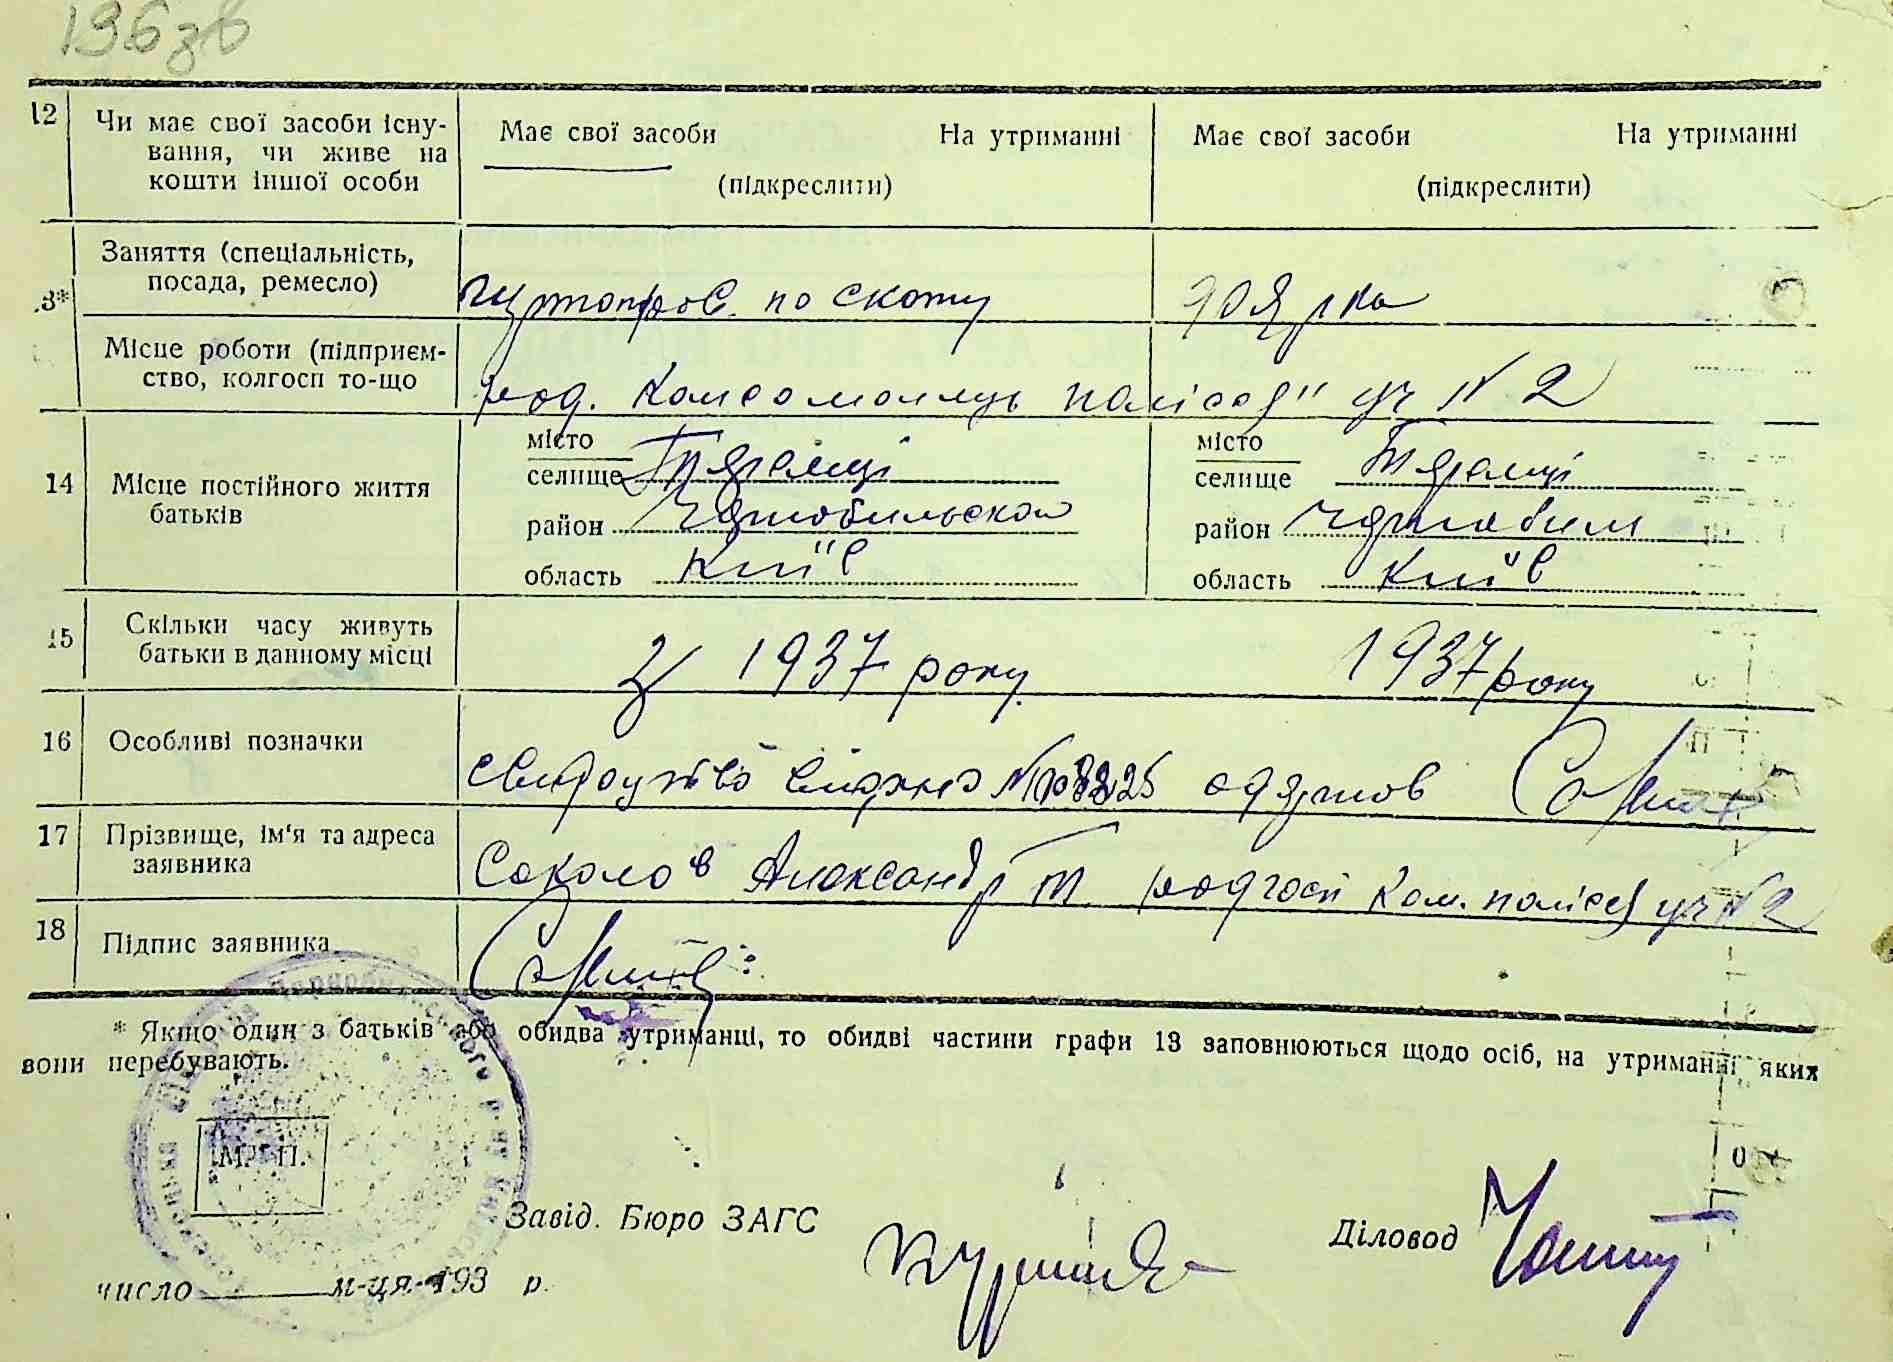 196зв
12 Чи має свої засоби існу- Має свої засоби На утриманні Має свої засоби На утриманні
вання, чи живе на
кошти іншої особи (підкреслити) (підкреслити)
Заняття (спеціальність,
посада, ремесло) по скоту доярка
3*
Місце роботи (підприєм-
ство, колгосп то-що Комсомолець полісся" уч N 2
місто місто
селище Теремці селище Теремці
14 Місце постійного життя
батьків район Чорнобильском район Чорнобил
область Київ область Київ
15 Скільки часу живуть
батьки в данному місці З 1937 року 1937 року
16 Особливі позначки
одержав
17 Прізвище, ім'я та адреса
заявника Соколов Александр Т. радгосп Ком. полісся уч N 2
18 Підпис заявника
* Якщо один з батьків або обидва утриманці, то обидві частини графи 13 заповнюються щодо осіб, на утриманні яких
вони перебувають.
М. П.
Завід. Бюро ЗАГС
Діловод
число м-ця 193 р.